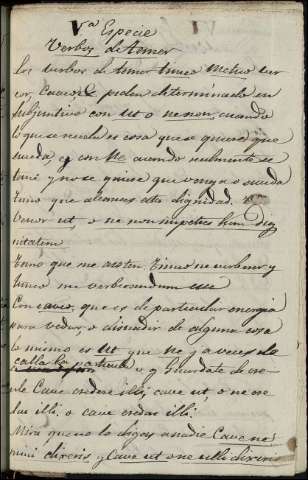 Vª Especie
Verbos de temer
Los verbos de temer timeo metuo ver
eor, Caveo &c piden determinado en
subjuntivo con ut o ne non, cuando
lo que se recela es cosa que se quiere que
suceda, y con Ne cuando realmente se
teme y no se quiere que venga o suceda
Temo que alcances esta dignidad.
Vereor ut, o ne non impetres hanc dig
nitatem
Temo que me azoten Timeo ne verberer y
timeo me verberandum esse
Con caveo, que es de particular energia
para vedar, o disuadir de alguna cosa
lo mismo es ut que ne, y a veces se
calla la particula v. g. Guardate de cre-
erle Cave credas illi, cave ut, o ne cre
das illi. o cave credas illi.
Mira que no lo digas a nadie Cave ne
mini dixeris, y Cave ut o ne illi dixeris